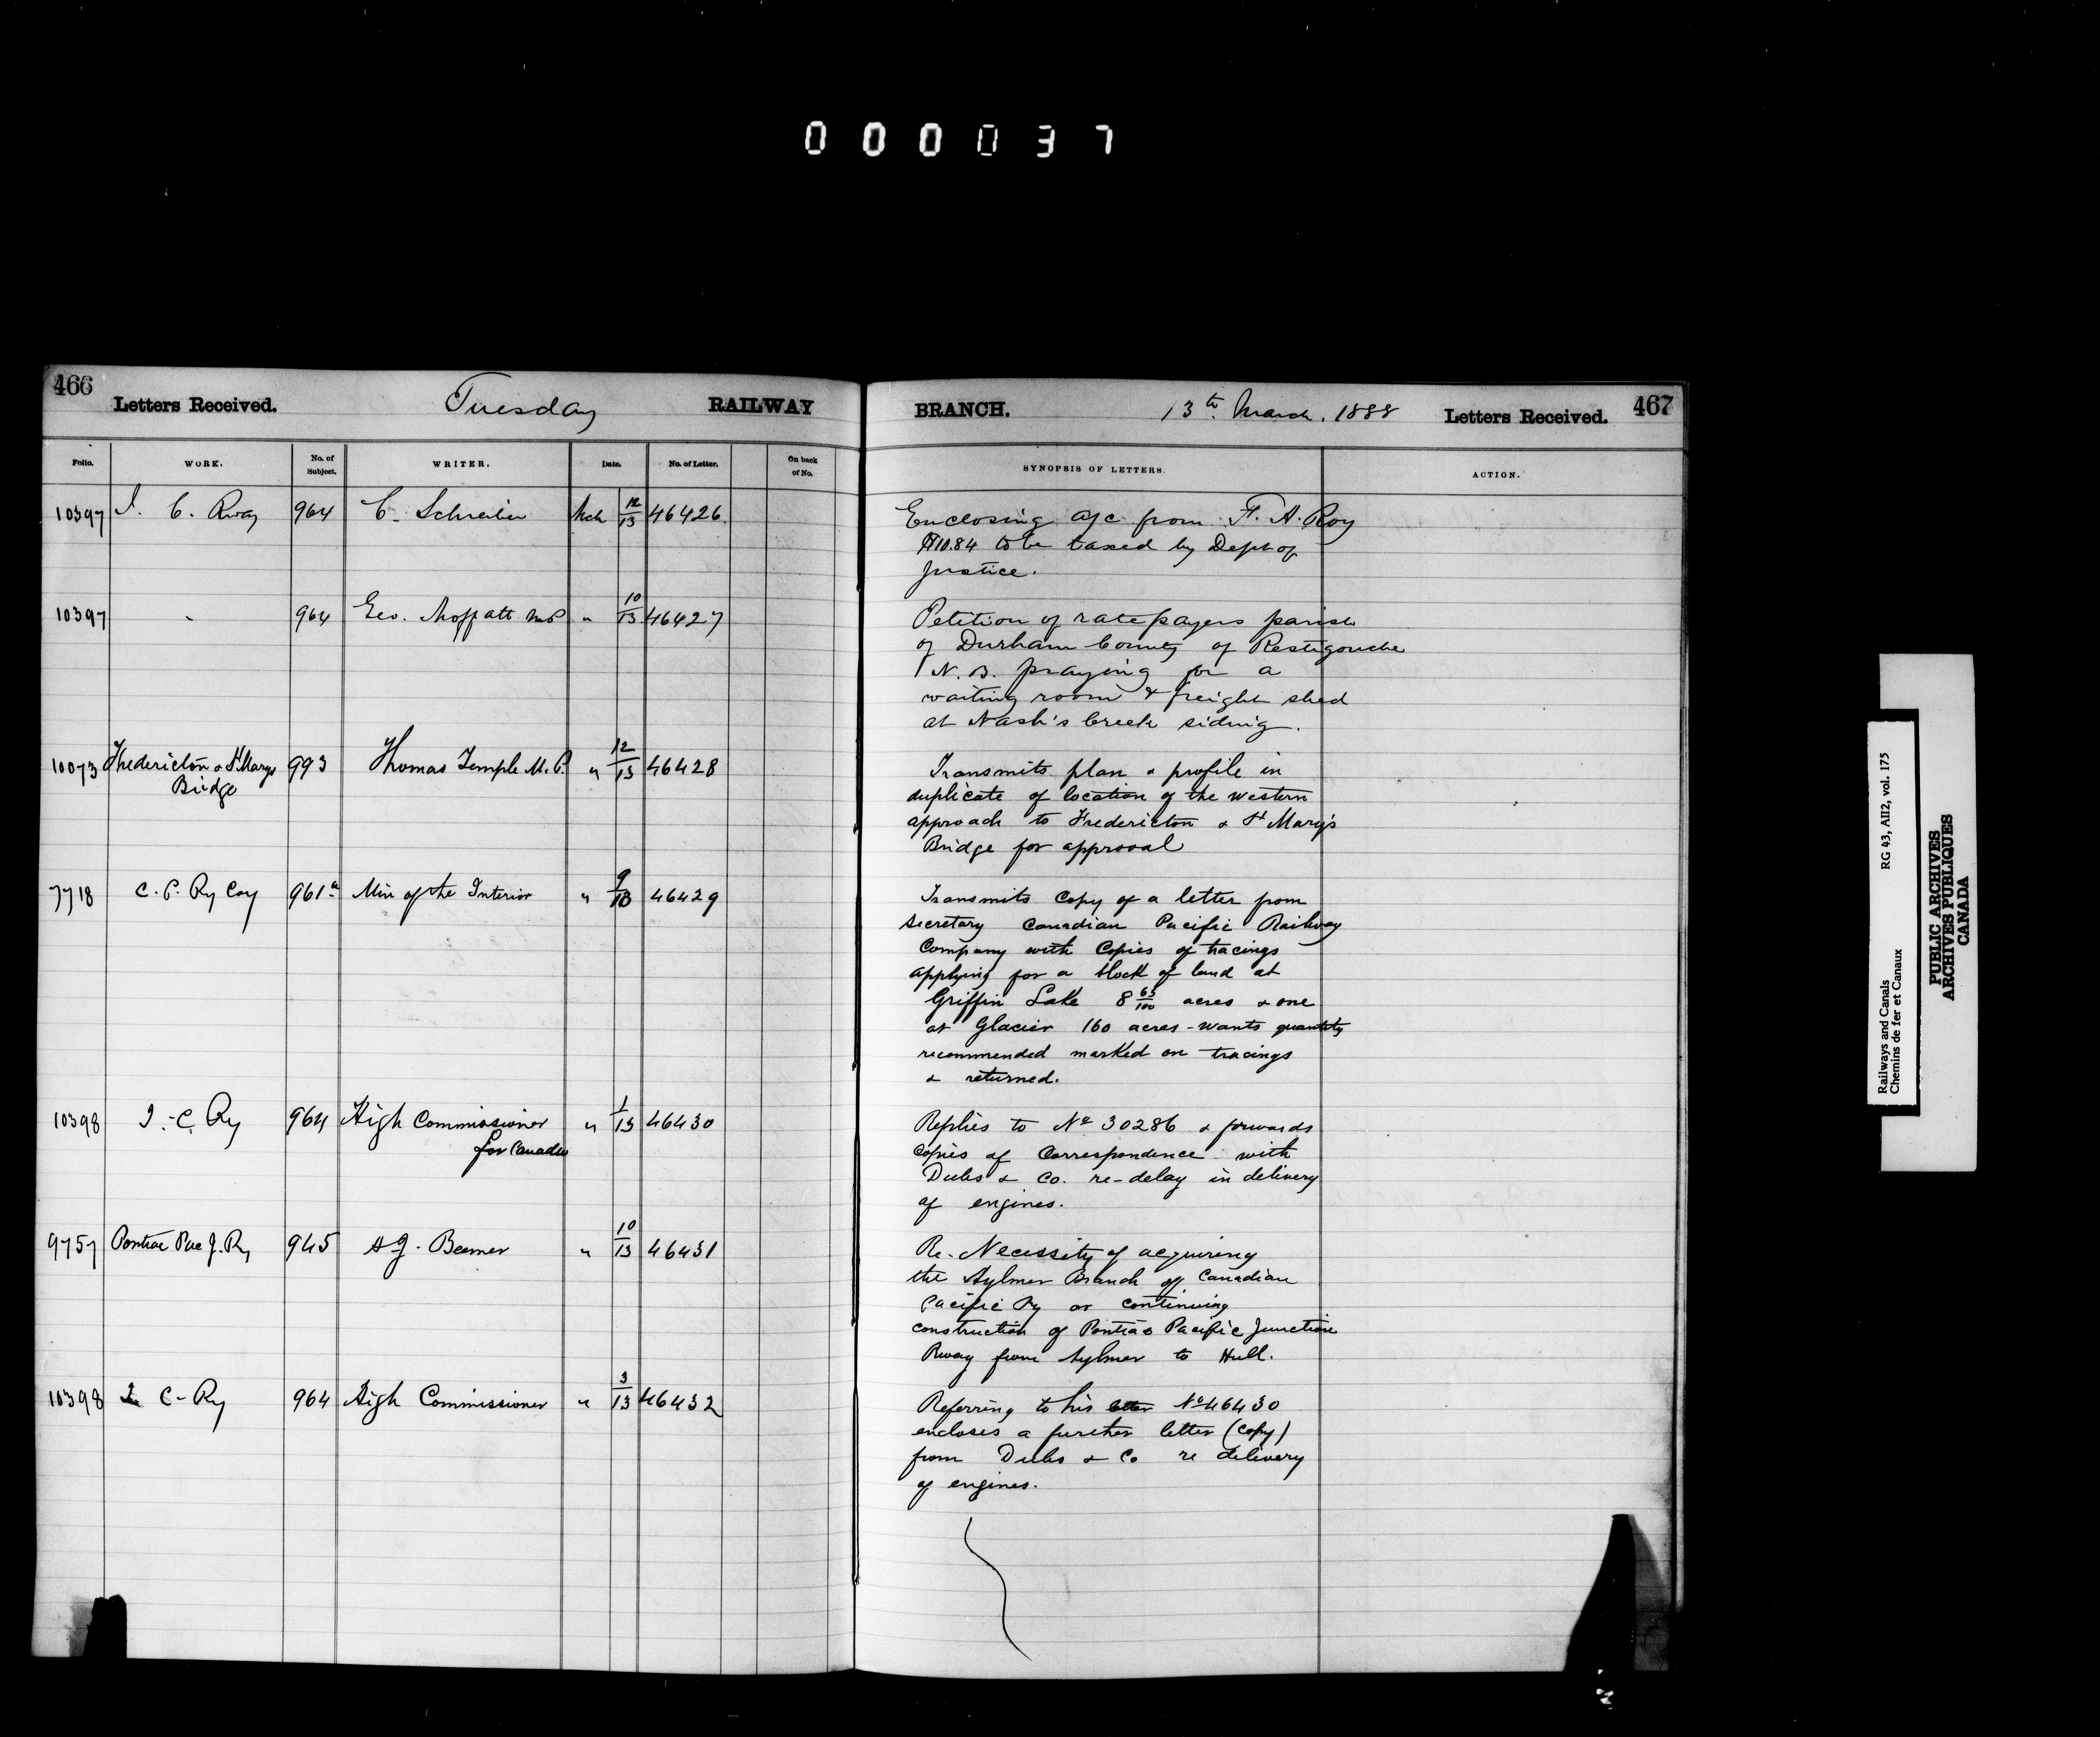 000037
466
Letters Received.
Tuesday
RAILWAY
BRANCH.
13th March. 1888
Letters Received.
467
Folio.
WORK.
No. of Subject.
WRITER.
Date.
No. of Letter.
On back of No.
SYNOPSIS OF LETTERS.
ACTION.
10397 I. C. Rway 964 C. Schreiber Mch 12/13 46426.
Enclosing a/c from F. A. Roy
$110.84 to be taxed by Dept of
Justice.
10397 " 964 Geo. Moffatt MP " 10/13 46427
Petition of ratepayers parish
of Durham County of Restigouche
N. B. praying for a
waiting room & freight shed
at Nash's Creek siding.
10073 Fredericton & St Marys 993 Thomas Temple M.P. " 12/13 46428
Bridge
Transmits plan & profile in
duplicate of location of the western
approach to Fredericton & St Mary's
Bridge for approval
7718 C. P. Ry Coy 961a Min of the Interior " 9/13 46429
Transmits Copy of a letter from
Secretary Canadian Pacific Railway
Company with Copies of tracings
applying for a block of land at
Griffin Lake 8 65/100 acres & one
at Glacier 160 acres - wants quantity
recommended marked on tracings
& returned.
10398 I. C. Ry 964 High Commissioner " 1/13 46430
for Canada
Replies to No 30286 & forwards
Copies of Correspondence with
Dubs & Co. re-delay in delivery
of engines.
9757 Pontiac Pac J. Ry 945 Beemer " 10/13 46431
Re. Necessity of acquiring
the Aylmer Branch of Canadian
Pacific Ry or continuing
construction of Pontiac Pacific Junction
Rway from Aylmer to Hull.
10398 I C - Ry 964 High Commissioner " 3/13 46432
Referring to his letter No 46430
encloses a further letter (Copy)
from Dubs & Co re delivery
of engines.
Railways and Canals RG 43, AII2, vol. 175
Chemins de fer et Canaux
PUBLIC ARCHIVES
ARCHIVES PUBLIQUES
CANADA